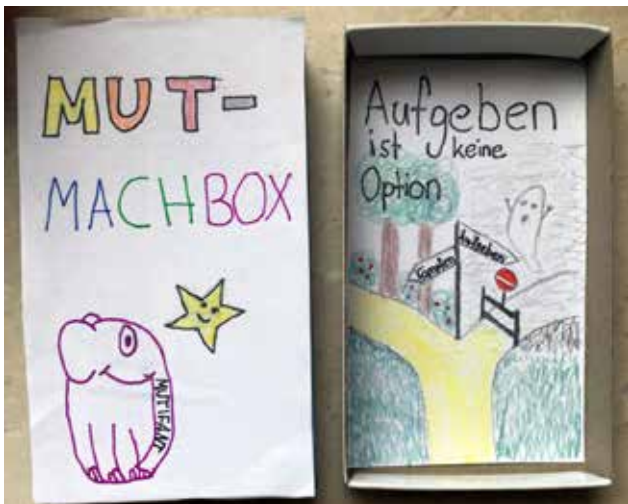 MUT-
MACHBOX
MUTIFANT
Aufgeben
ist keine
Option
Aufgeben